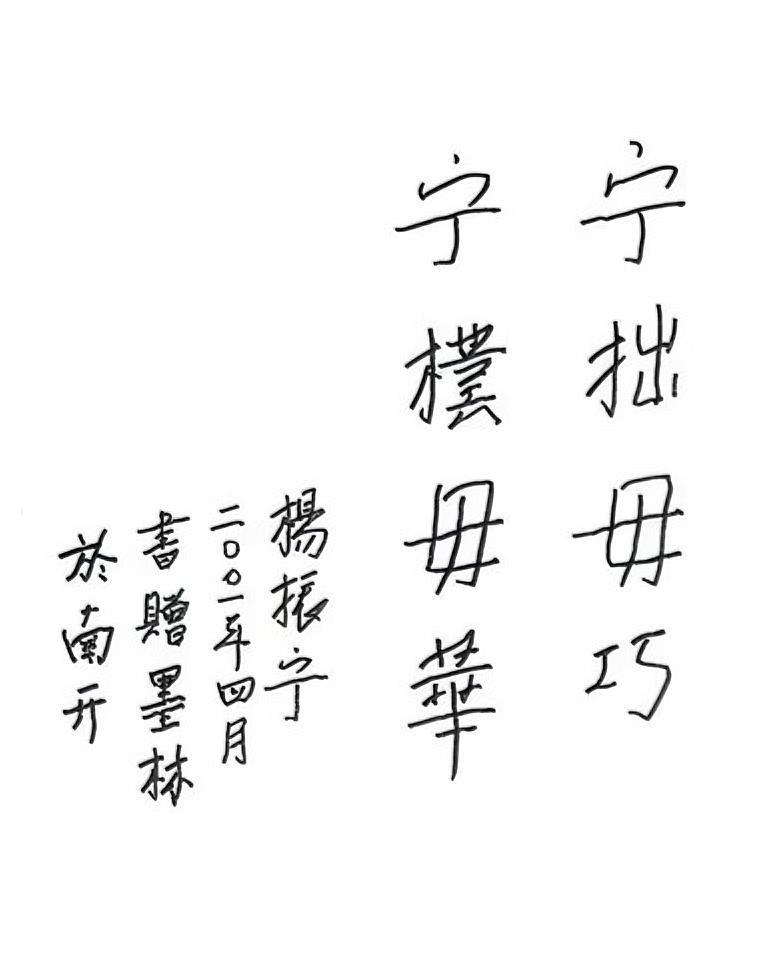 宁拙毋巧
宁樸毋華
楊振宁
二〇〇一年四月
書贈墨林
於南开